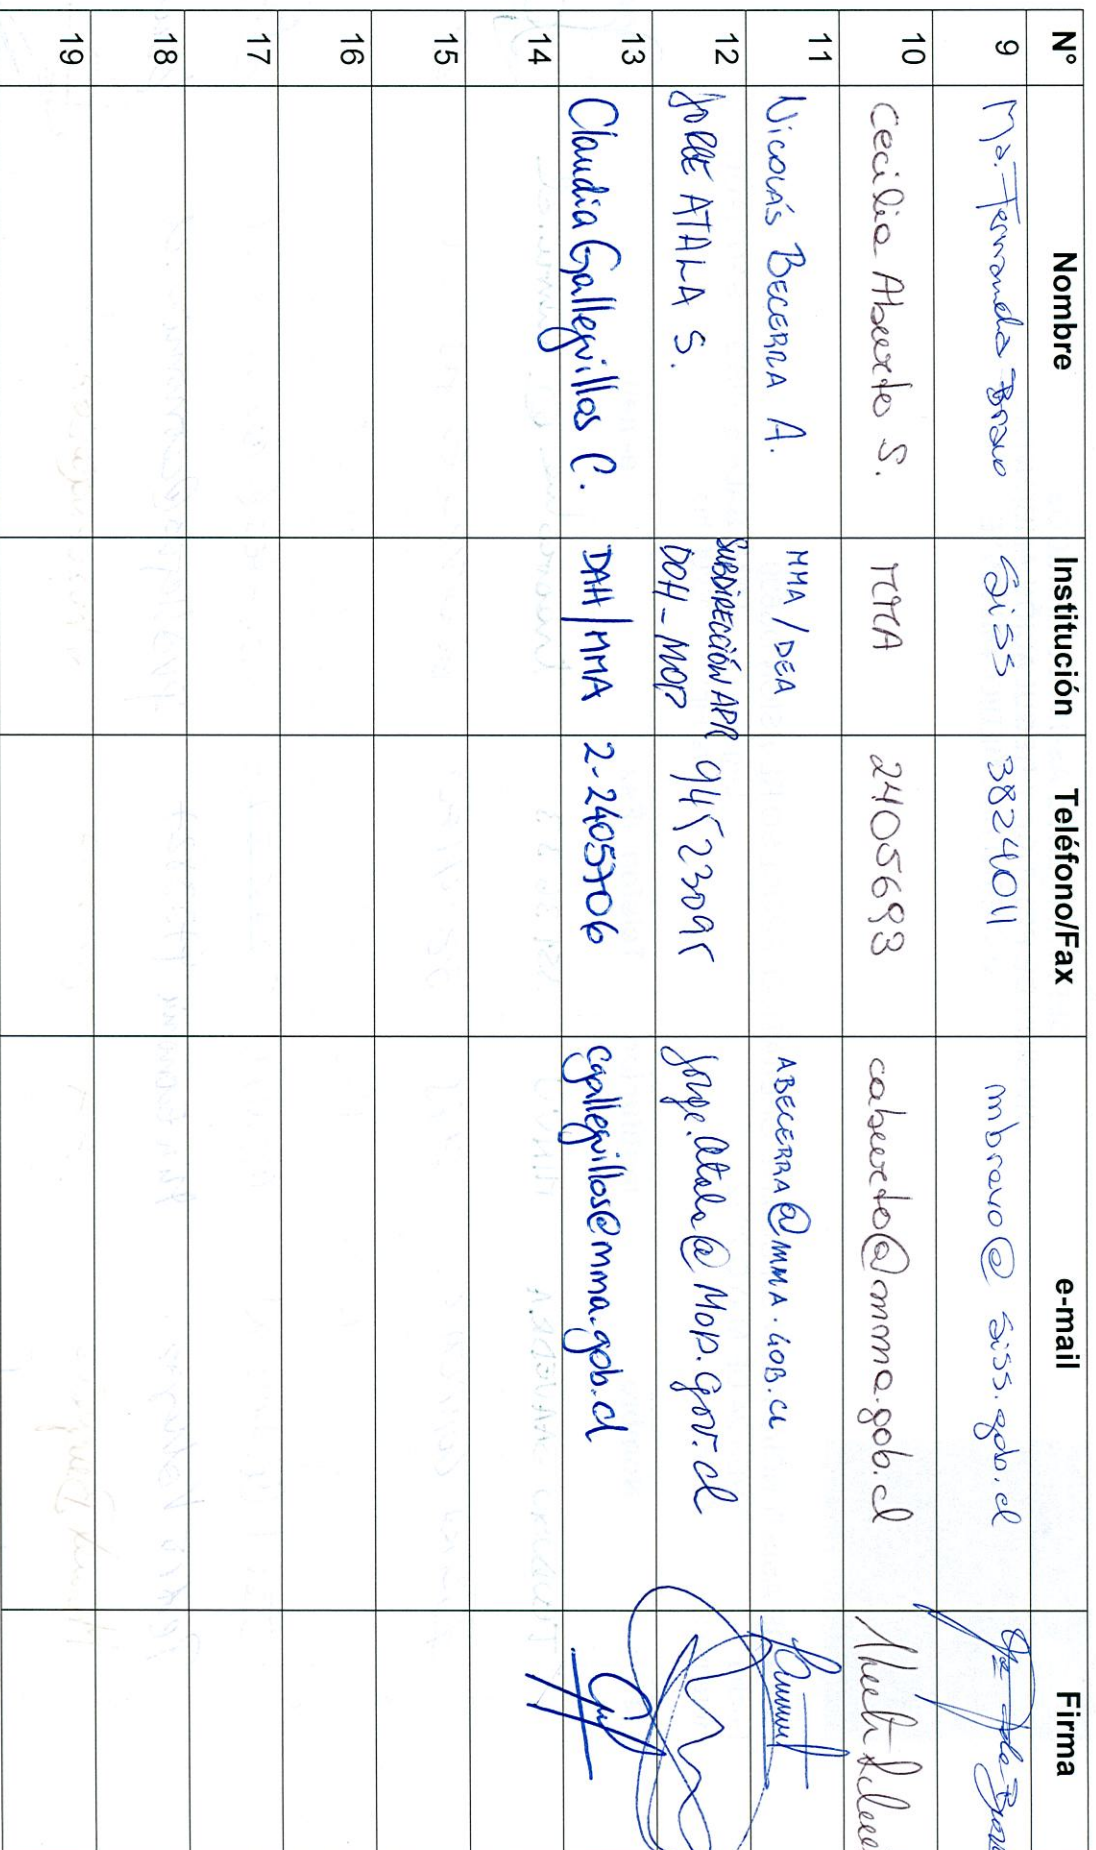 N° Nombre Institución Teléfono/Fax e-mail Firma
9 Mª. Fernanda Bravo Siss 3824011 mbravo@siss.gob.cl
10 Cecilia Aburto S. MMA 2405693 caburto@mma.gob.cl
11 Nicolás BECERRA A. MMA / DEA ABECERRA@MMA.GOB.CL
12 JORGE ATALA S. SUBDIRECCIÓN APR DOH-MOP 94523095 jorge.atala@mop.gov.cl
13 Claudia Galleguillos C. DAH/MMA 2-2405706 cgalleguillos@mma.gob.cl
14
15
16
17
18
19